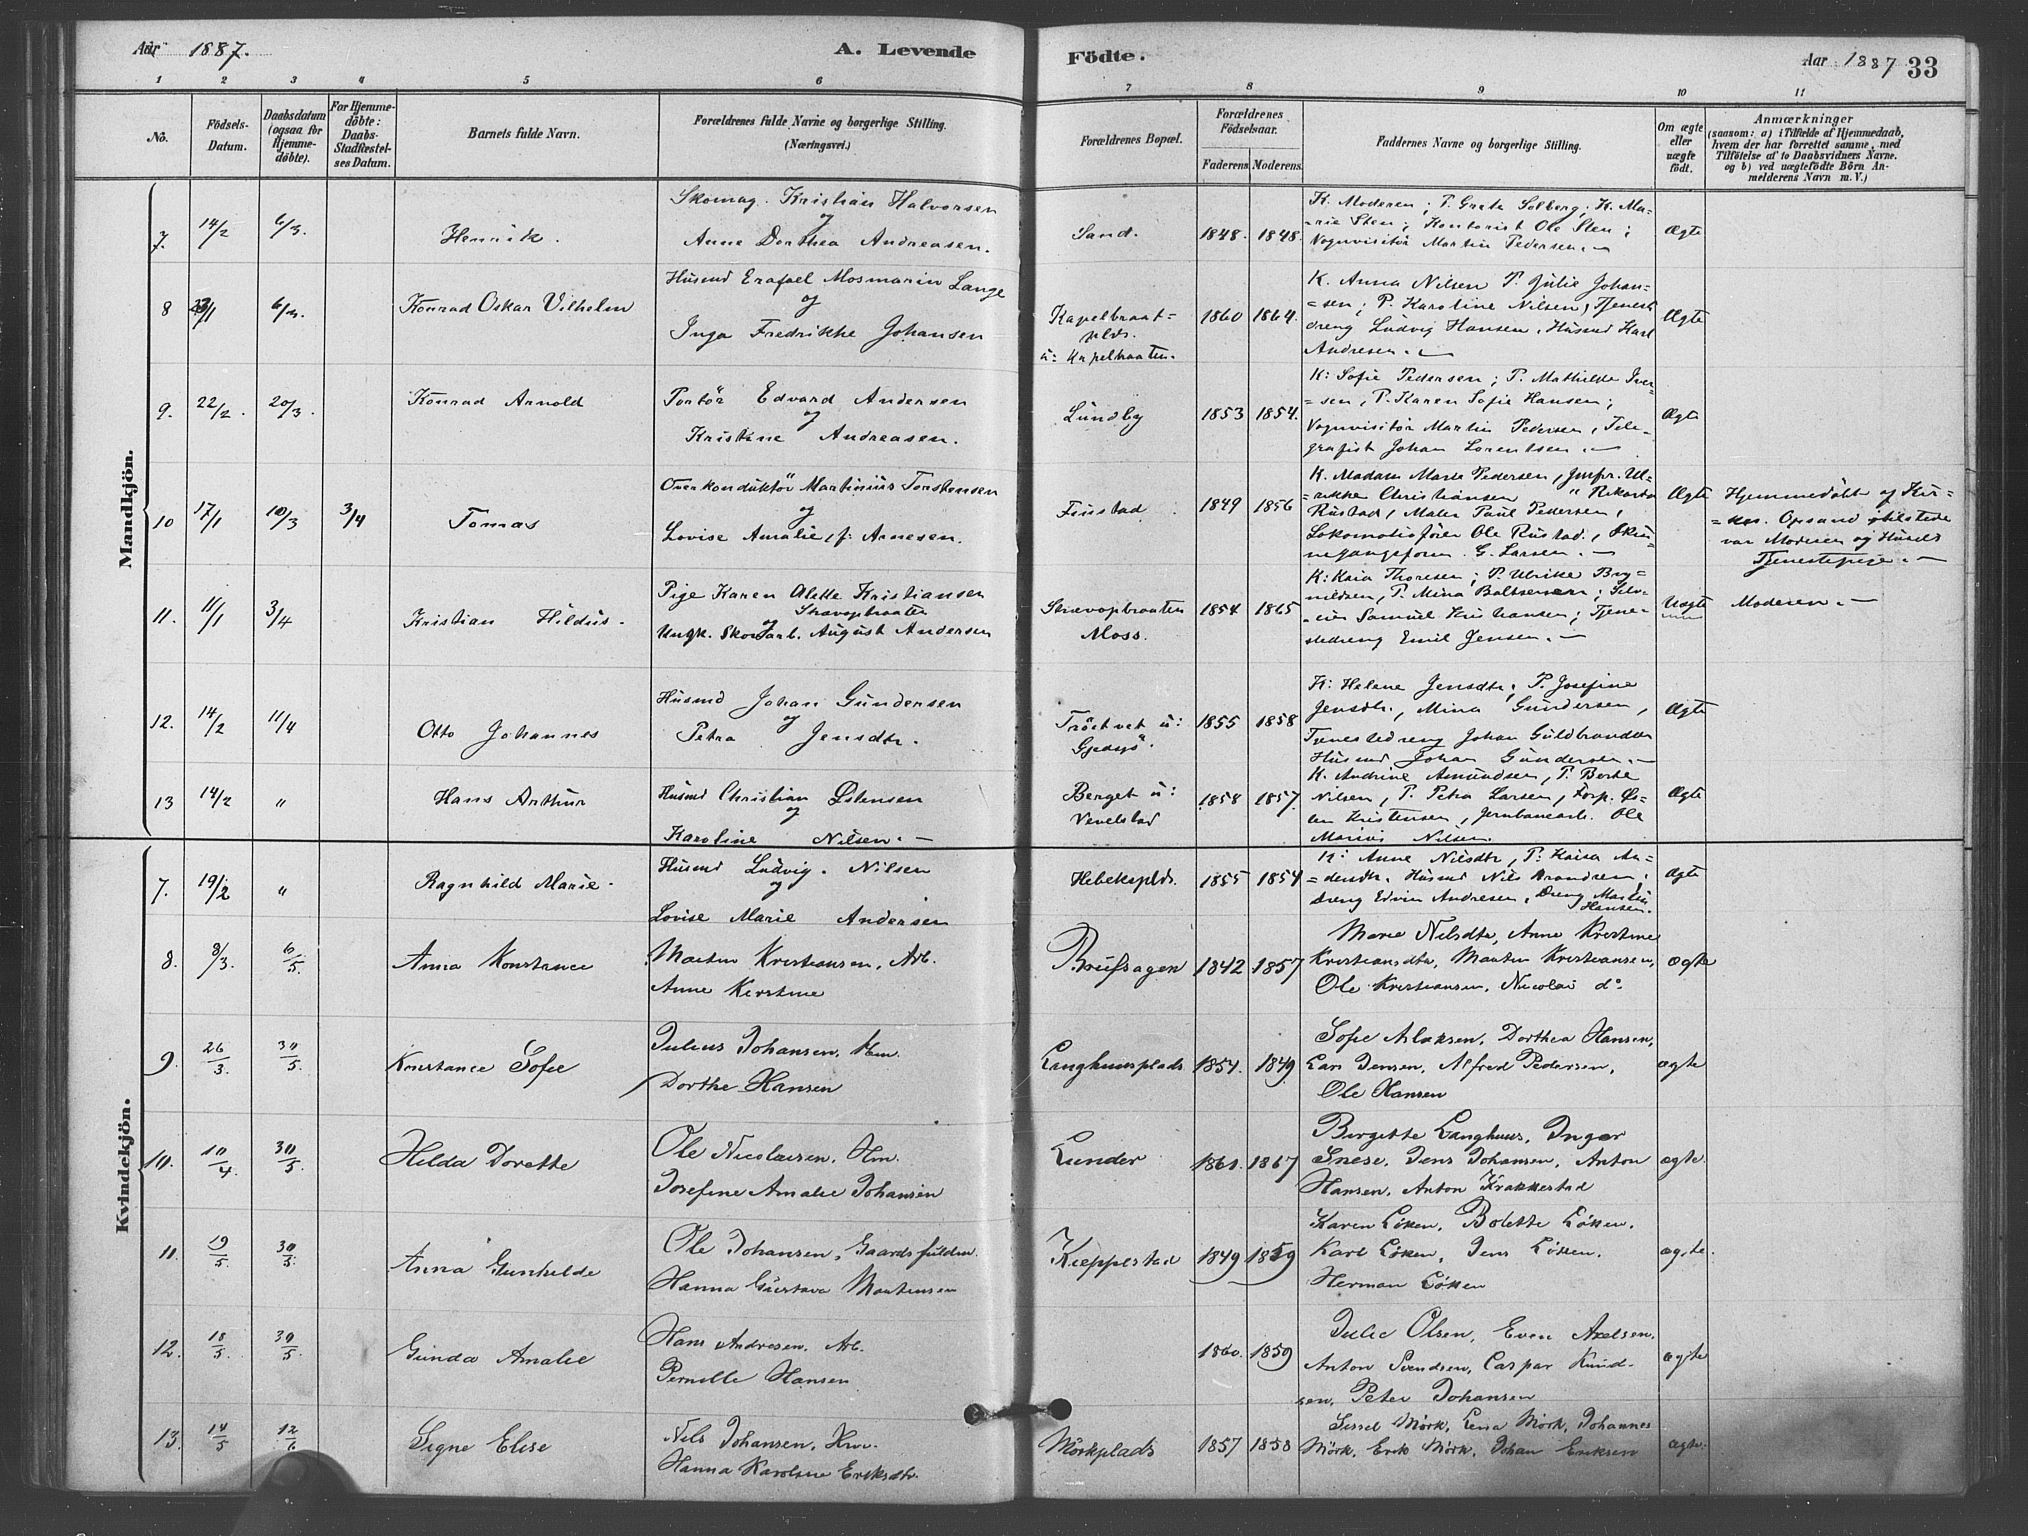 Aar 1887. A. Levende Födte. Aar 1887 33
1 2 3 4 5 6 7 8 9 10 11
No.
Födsels-Datum.
Daabsdatum (ogsaa for Hjemme-döbte).
For Hjemme-döbte: Daabs-Stadfæstel-ses Datum.
Barnets fulde Navn.
Forældrenes fulde Navne og borgerlige Stilling. (Næringsvei.)
Forældrenes Bopæl.
Forældrenes Födselsaar.
Faderens. Moderens.
Faddernes Navne og borgerlige Stilling.
Om ægte eller uægte födt.
Anmærkninger
(saasom: a) i Tilfælde af Hjemmedaab,
hvem der har forrettet samme, med
Tilföielse af to Daabsvidners Navne.
og b) ved uægtefödte Börn An-
melderens Navn m. V.)
Mandkjön.
7. 14/2 6/3. Henrik.
Skomag. Kristian Halvorsen
og
Anne Dorthea Andreasen.
Sand. 1848. 1848.
K. Moderen; P. Grete Solberg; K. Ma-
rie Sten; Kontorist Ole Sten;
Vognvisitör Martin Pedersen.
Ægte
8 6/3. Konrad Oskar Vilhelm
Husmd Erafael Mosmarin Lange
og
Inga Fredrikke Johansen
Kapelbraat-
plds.
u: Kapelbraaten.
1860 1864.
K. Anna Nilsen P. Julie Johan-
sen; P. Karoline Nilsen, Tjenest
dreng Ludvig Hansen, Husmd Karl
Andresen.
Ægte
9. 22/2. 20/3. Konrad Arnold
Edvard Andersen
og
Kristine Andreasen.
Lundby 1853 1854.
K: Sofie Pedersen; P. Mathilde Iver-
sen, P. Karen Sofie Hansen;
Vognvisitör Martin Pedersen, Tele-
grafist Johan Lorentsen.
Ægte
10 17/1 10/3 3/4 Tomas
Overkonduktör Martinius Torstensen
og
Lovise Amalie, f: Arnesen.
Finstad 1849 1856
K. Madam Marte Pedersen, Jmfr. Ul-
rikke Christiansen "
Rustad, Maler Paul Pedersen,
Lokomotivförer Ole Rustad,
G. Larsen.
Ægte
Hjemmedöbt af Kir-
Opsand tilstede
var Moderen og Husets
Tjenestepige.
11. 11/1 3/4 Kristian Hildus.
Pige Karen Alette Kristiansen
Skrevopbraaten
og
Ungk. August Andersen
Skrevopbraaten
Moss.
1854 1865
K: Kaia Thoresen; P. Ulrikke Bry-
nildsen, P. Mina Baltsersen;
Samuel Kristiansen; Tjene-
stedreng Emil Jensen.
Uægte
Moderen.
12. 14/2 11/4 Otto Johannes
Husmd Johan Gundersen
og
Petra Jensdtr.
1855 1858
K: Helene Jensdtr, P. Josefine
Jensdtr., Mina Gundersen,
Tjenestedreng Johan Guldbrandsen
Husmd Johan Gundersen.
Ægte
13 14/2 " Hans Arthur
Husmd Christian Östensen
og
Karoline Nilsen.
Berget u:
Vevelstad
1858 1857.
K. Andrine Amundsen, P. Berte
Nilsen, P. Petra Larsen, Forp. Ös-
ten Kristensen, Jernbanearb. Ole
Marius Nilsen
Ægte
Kvindekjön.
7. 19/2 " Ragnhild Marie.
Husmd Ludvig Nilsen
og
Lovise Marie Andersen
Hebeksplds. 1855 1854
K: Anne Nilsdtr, P: Kaisa An-
dersdtr. Husmd Nils
Dreng Edvin Andresen, Dreng Martin
Hansen.
Ægte
8. 8/3. 6/5 Anna Konstance
Martin Kristiansen, Arb.
Anne Kirstine
1842 1857
Marie Nilsdtr, Anne Kirstine
Kristiansdtr, Martin Kristiansen,
Ole Kristiansen, Nicolai do.
ægte
9. 26/3. 30/5. Konstance Sofie
Julius Johansen, Hm.
Dorthe Hansen
Langhuusplads 1854. 1849
Sofie Aslaksen, Dorthea Hansen,
Lars Jensen, Alfred Pedersen,
Ole Hansen
ægte
10. 10/4. 30/5. Hilda Dorette
Ole Nicolaisen, Hm.
Josefine Amalie Johansen
Lunder 1861. 1867
Birgitte Langhuus, Inger
Jens Johansen, Anton
Hansen, Anton Krakkestad
ægte.
11. 19/5. 30/5. Anna Gunhilde
Ole Johansen,
Hanna Gustava Martinsen
Kjeppestad 1849 1859
Karen Löken, Bolette Löken,
Karl Löken, Jens Löken,
Herman Löken
ægte.
12. 18/3. 30/5 Gunda Amalie
Hans Andresen, Arb.
Pernille Hansen
1860. 1859
Julie Olsen, Even Axelsen,
Anton Svendsen, Caspar Knud-
sen, Peter Johansen
ægte
13. 14/5 12/6 Signe Elise
Nils Johansen,
Hanna Karoline Eriksdtr.
Mörkplads 1857 1858
Sissel Mörk, Lena Mörk, Johannes
Mörk, Erik Mörk, Johan Eriksen
ægte.